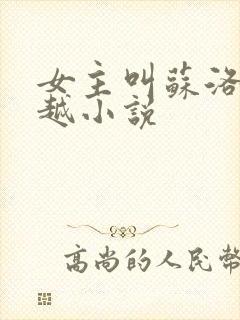 女主叫蘇洛
越小説
高尚的人民幣